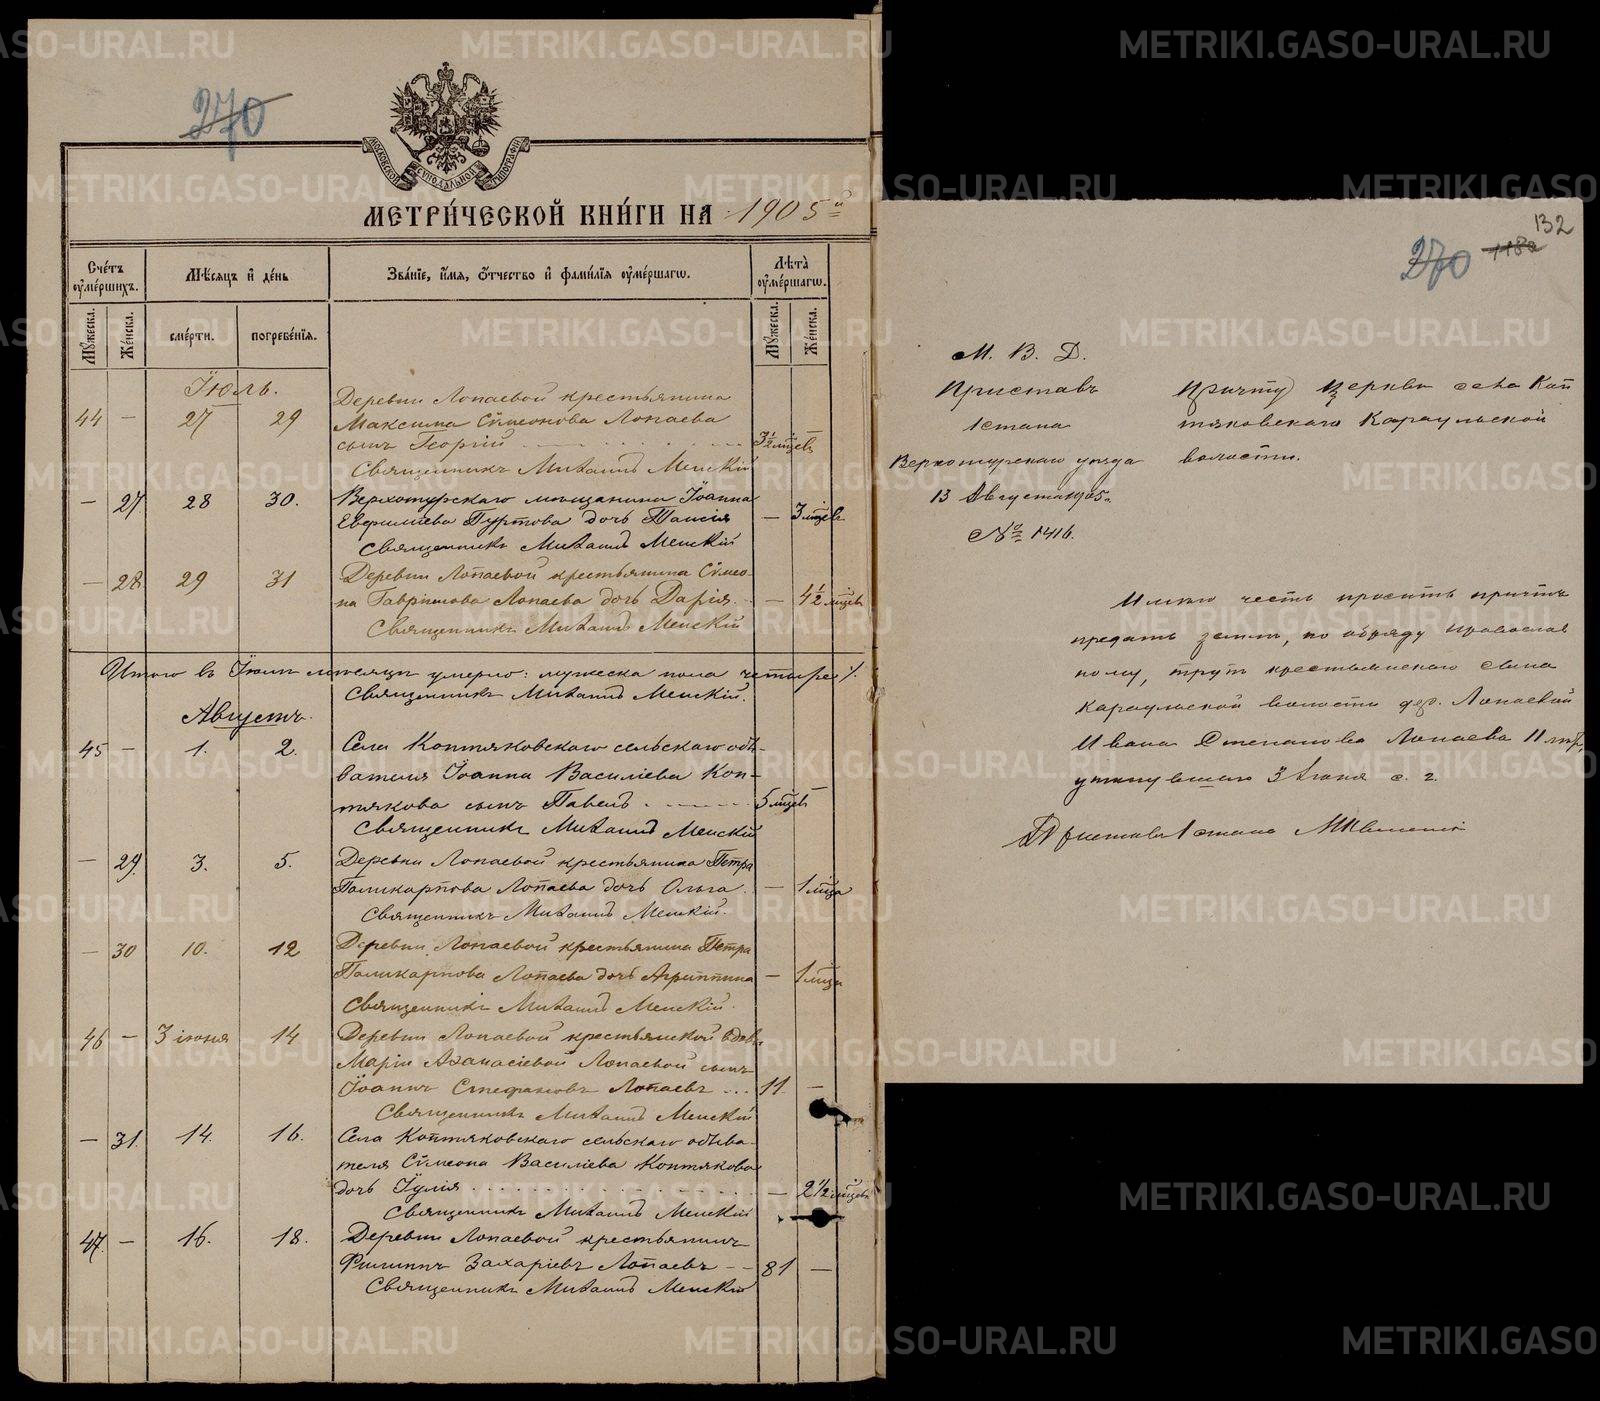 270
МОСКОВСКОЙ СѴНОДАЛЬНОЙ ТИПОГРАФІИ
МЕТРИ́ЧЕСКОЙ КНИ́ГИ НА 1905й
Сче́тъ оумершихъ.
Мѣсяцъ и де́нь
Зва́нїе, и́мя, ѻ҆́тчество и фами́лїя оумершагѡ.
Лѣта̀ оумершагѡ.
Мꙋжеска. Же́нска.
сме́рти. погребе́нїя.
Мꙋжеска. Же́нска.
Їюль.
44 — 27 29 Деревни Лопаевой крестьянина
Максима Сѵмеонова Лопаева
сынъ Георгій 3½ мѣсцевъ
Священникъ Михаилъ Менскій
— 27 28 30. Верхотурскаго мѣщанина Їоанна
Гуртова дочь Таисія — 3 мѣсцевъ
Священникъ Михаилъ Менскій
— 28 29 31 Деревни Лопаевой крестьянина Сѵмео-
на Гавріилова Лопаева дочь Дарія. — 4½ мѣсцевъ
Священникъ Михаилъ Менскій
Итого въ Їюлѣ мѣсяцѣ умерло: мужеска пола четыре
Священникъ Михаилъ Менскій.
Августъ.
45 — 1. 2. Села Коптяковскаго сельскаго обы-
вателя Їоанна Василіева Коп-
тякова сынъ Павелъ 5 мѣсцевъ
Священникъ Михаилъ Менскій
— 29. 3. 5. Деревни Лопаевой крестьянина Петра
Поликарпова Лопаева дочь Ольга — 1 мѣсца
Священникъ Михаилъ Менскій.
— 30 10. 12 Деревни Лопаевой крестьянина Петра
Поликарпова Лопаева дочь Агриппина — 1 мѣсца
Священникъ Михаилъ Менскій.
46 — 3 іюня 14 Деревни Лопаевой крестьянской вдовы
Маріи Аѳанасіевой Лопаевой сынъ
Їоаннъ Стефановъ Лопаевъ 11 —
Священникъ Михаилъ Менскій
— 31. 14. 16. Села Коптяковскаго сельскаго обыва-
теля Сѵмеона Василіева Коптякова
дочь Їулія — 2½ мѣсцевъ
Священникъ Михаилъ Менскій
47 — 16. 18. Деревни Лопаевой крестьянинъ
Филиппъ Захаріевъ Лопаевъ 81 —
Священникъ Михаилъ Менскій
132
270 1182
М. В. Д.
Приставъ
1 стана
Верхотурскаго уѣзда
13 Августа 1905 г.
№ 1416.
Причту церкви села Коп
тяковскаго Караульской
волости.
Имѣю честь просить причтъ
предать землѣ, по обряду православ
ному, трупъ крестьянскаго сына
Караульской волости дер. Лопаевой
Ивана Степанова Лопаева 11 лѣтъ,
утонувшаго 3 Іюня с. г.
Приставъ 1 стана
METRIKI.GASO-URAL.RU